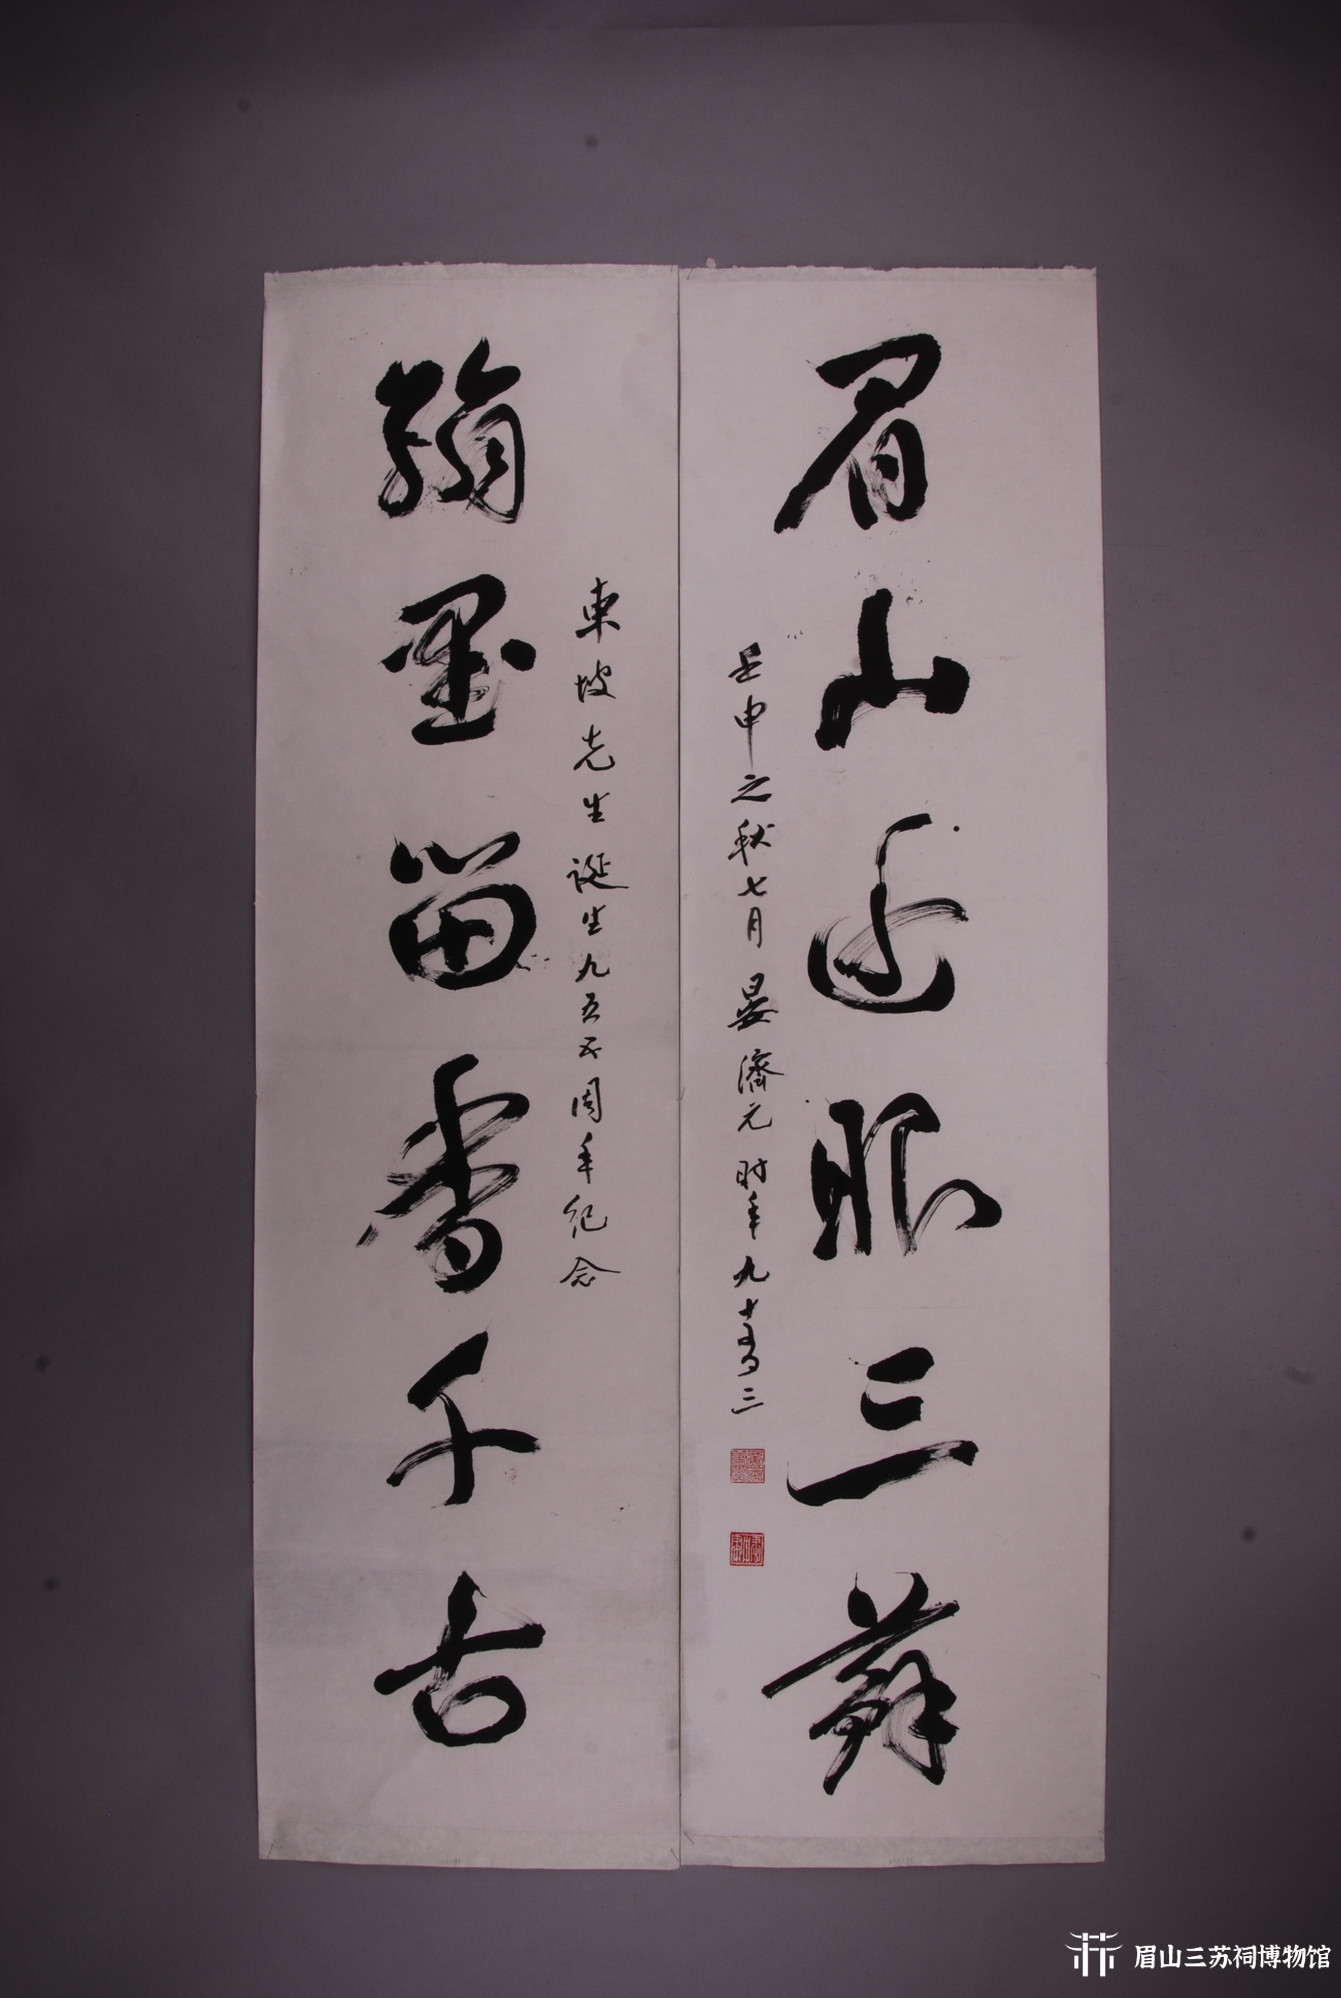 眉山近眼三蘇
壬申之秋七月晏濟元时年九十三
東坡先生诞生九五五周年纪念
翰墨留香千古
眉山三苏祠博物馆